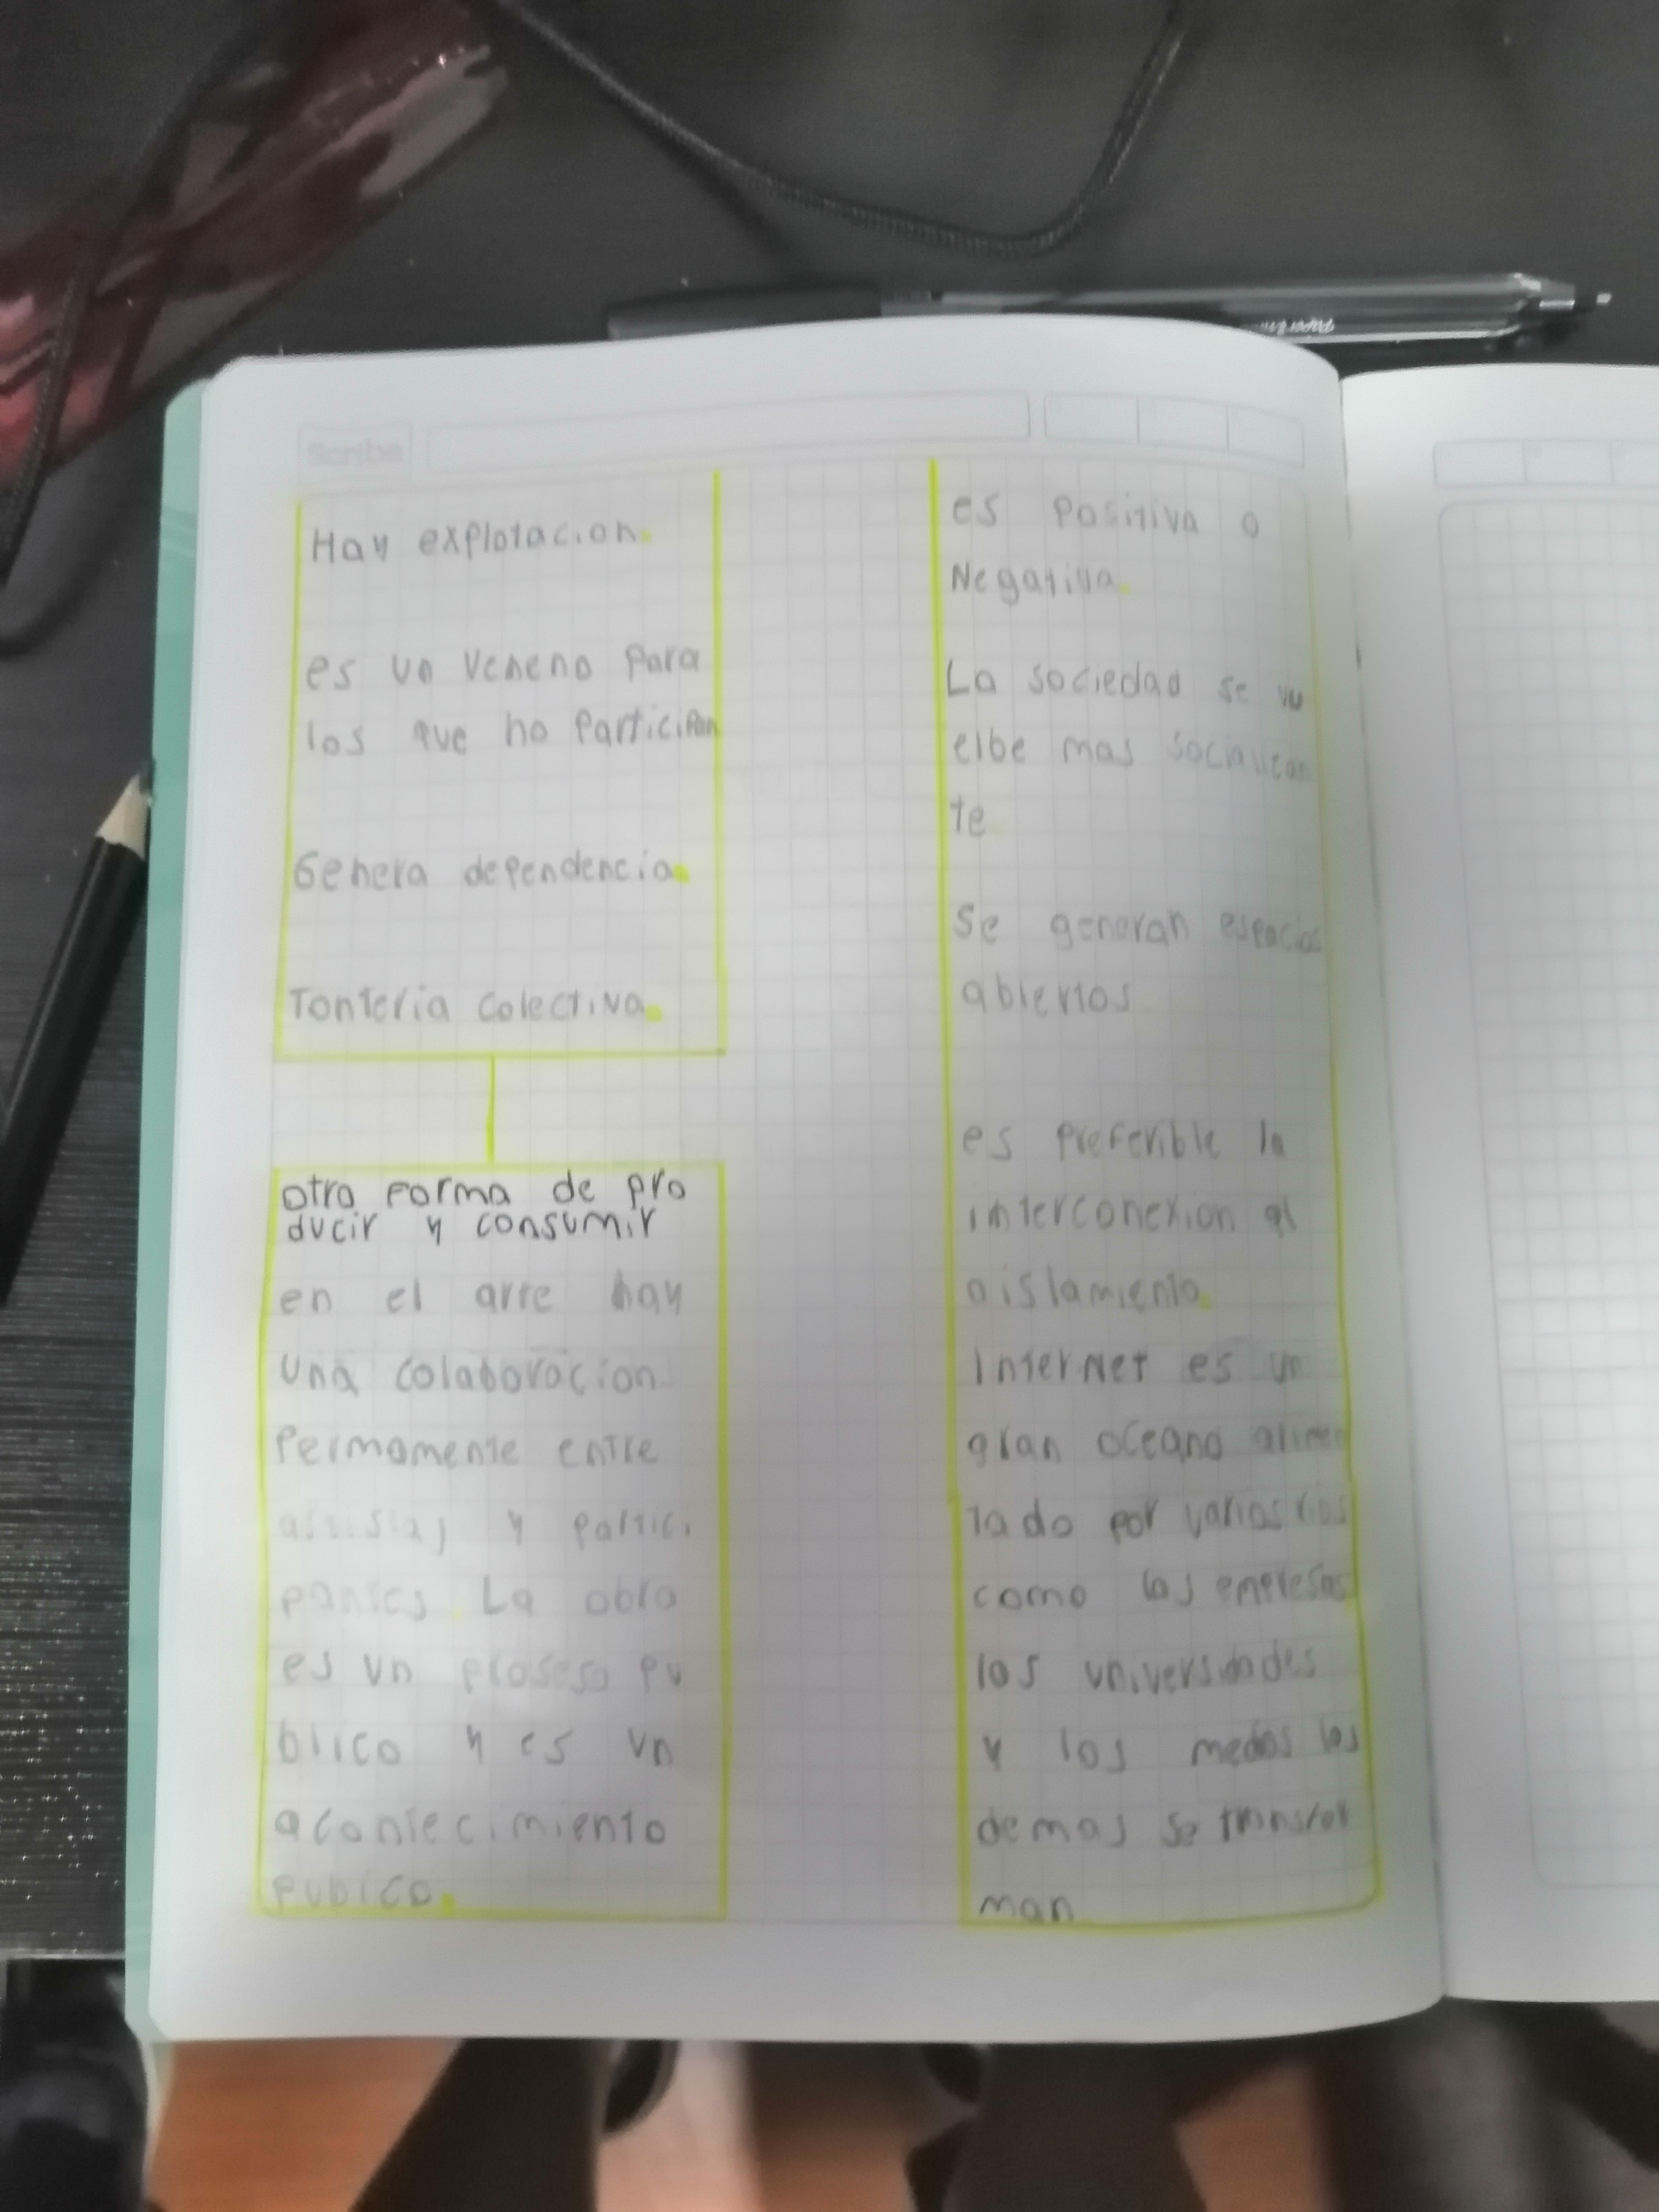 Scribe
Hay explotacion.
es un veneno para
los que no participan
Genera dependencia.
Tonteria colectiva.
otra forma de pro
ducir y consumir
en el arte hay
una colaboracion
Permamente entre
artistas y partici
pantes. La obra
es un proseso pu
blico y es un
acontecimiento
pubico.
es positiva o
Negativa.
La sociedad se vu
elbe mas socialican
te
Se generan espacios
abiertos
es preferible la
interconexion al
aislamiento.
Internet es un
gran oceano alimen
tado por varios rios
como las empresas
los universidades
y los medios los
demas se transfor
man